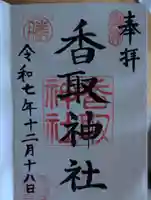 奉拝
香取神社
令和七年十二月十八日
香取
神社